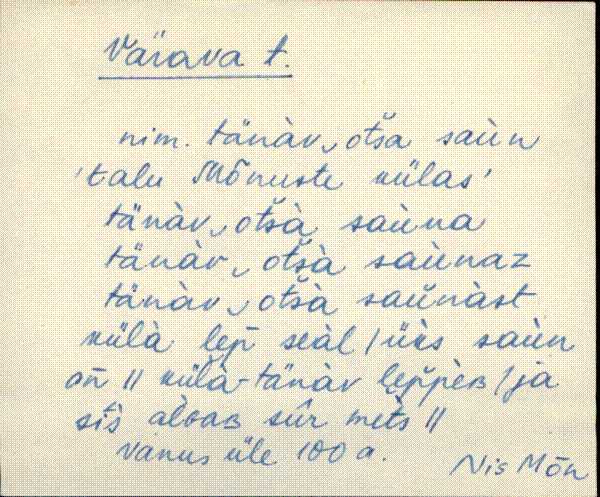 Värava t.
nim. tänàv, otša saùn
'talu Mõnuste külas'
tänàv, otšà saùna
tänàv, otšà saùnaz
tänàv, otšà saùnàst
külà lep̆ seàl / üks saùn
oñ // külà-tänàv lep̆pèʙ / ja
sìs àlɢaʙ sūr mèts //
Vanus üle 100 a.
Nis Mõn